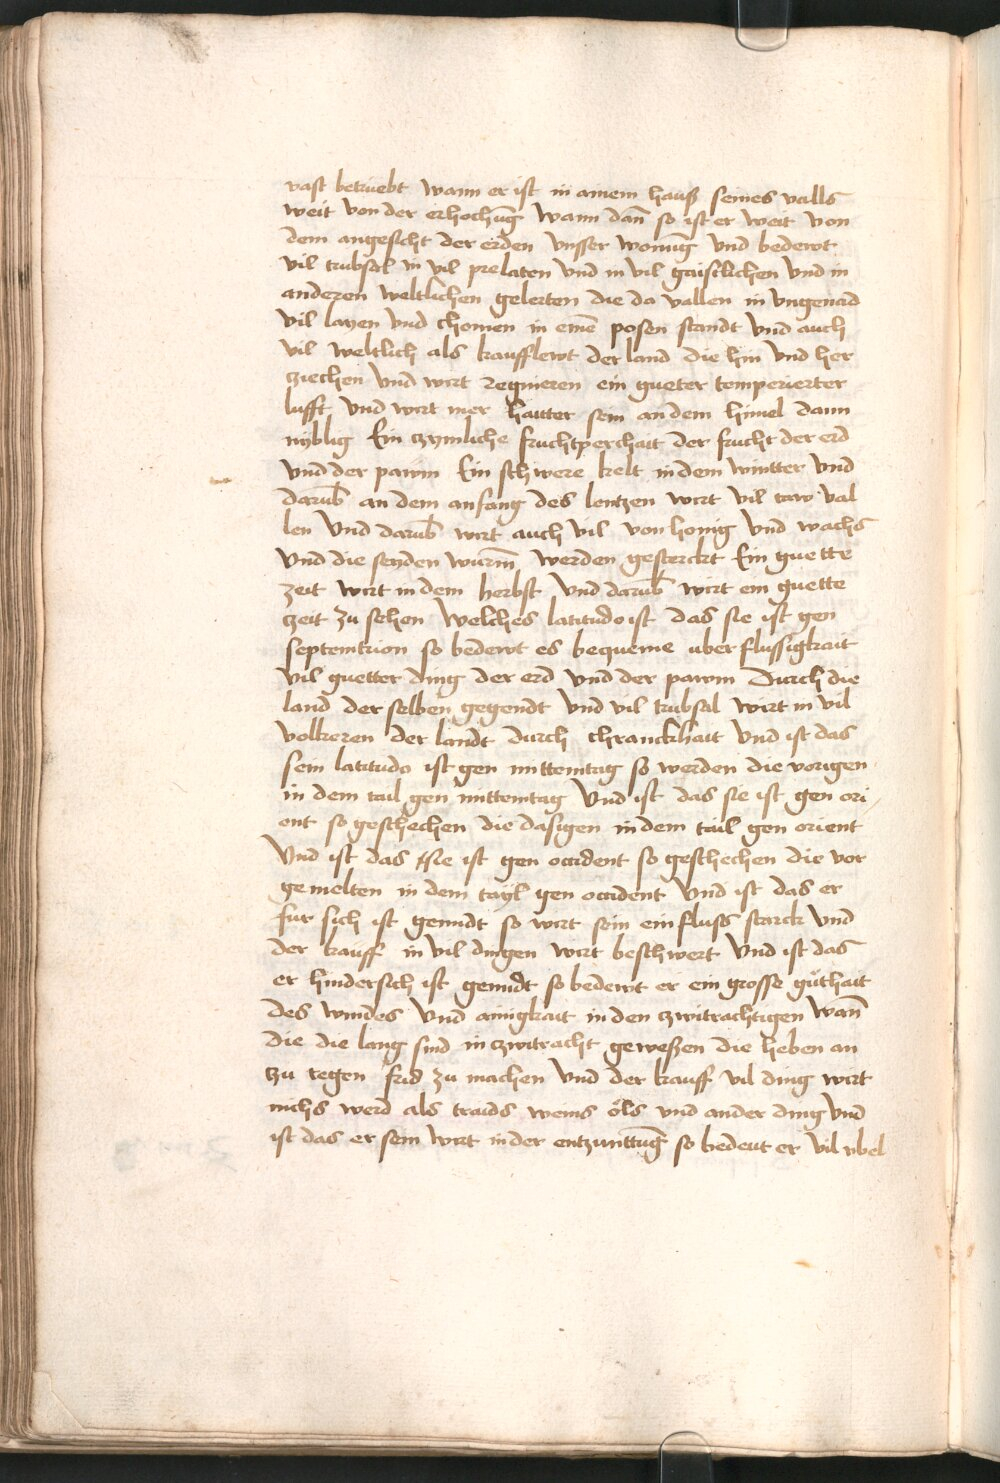 vast betruebt wann er ist in ainem hauß seines valls
weit von der erhochūg wann dañ so ist er weit von
dem angesicht der erden vnsser wonūg vnd bedewt
vil trubsal in vil prelaten vnd in vil gaistlichen vnd in
anderen weltlichen gelerten die da vallen in vngenad
vil layen vnd chomen in einē posen standt vnd auch
vil weltlich als kaufflewt der land die hin vnd her
ziechen vnd wirt regnieren ein gueter temperierter
lufft vnd wirt mer hautter sein an dem himel dann
nyblig Ein zymliche fruchtperchait der frucht der erd
vnd der pawm Ein schwere kelt in dem wintter vnd
darūb an dem anfang des lentzen wirt vil taw val
len vnd darūb wirt auch vil von honig vnd wachs
vnd die seyden wurm̄ werden gesterckt Ein guette
zeit wirt in dem herbst vnd darūb wirt ein guette
zeit zu sehen Welches latitudo ist das sie ist gen
septemtrion so bedewt es bequeme uberflussigkait
vil guetter ding der erd vnd der pawm Durch die
land der selben gegendt vnd vil trubsal wirt in vil
volkeren der landt durch chranckhait vnd ist das
sein latitudo ist gen mittemtag so werden die vorigen
in dem tail gen mittemtag Vnd ist das sie ist gen ori
ent so geschechen die dasigen in dem tail gen orient
Vnd ist das sie ist gen occident so geschechen die vor
gemelten in dem tayl gen occident Vnd ist das er
fur sich ist gemidt so wirt sein einfluss starck vnd
der kauff in vil dingen wirt beschwert Vnd ist das
er hindersich ist gemidt so bedewt er ein grosse guthait
des windes vnd ainigkait in den zwitrachtigen wañ
die die lang sind in zwitracht geweßen die heben an
zu regen frid zu machen vnd der kauff vil ding wirt
nichs werd als traids weins öls vnd ander ding vnd
ist das er sein wirt in der entzunttūg so bedeut er vil vbel